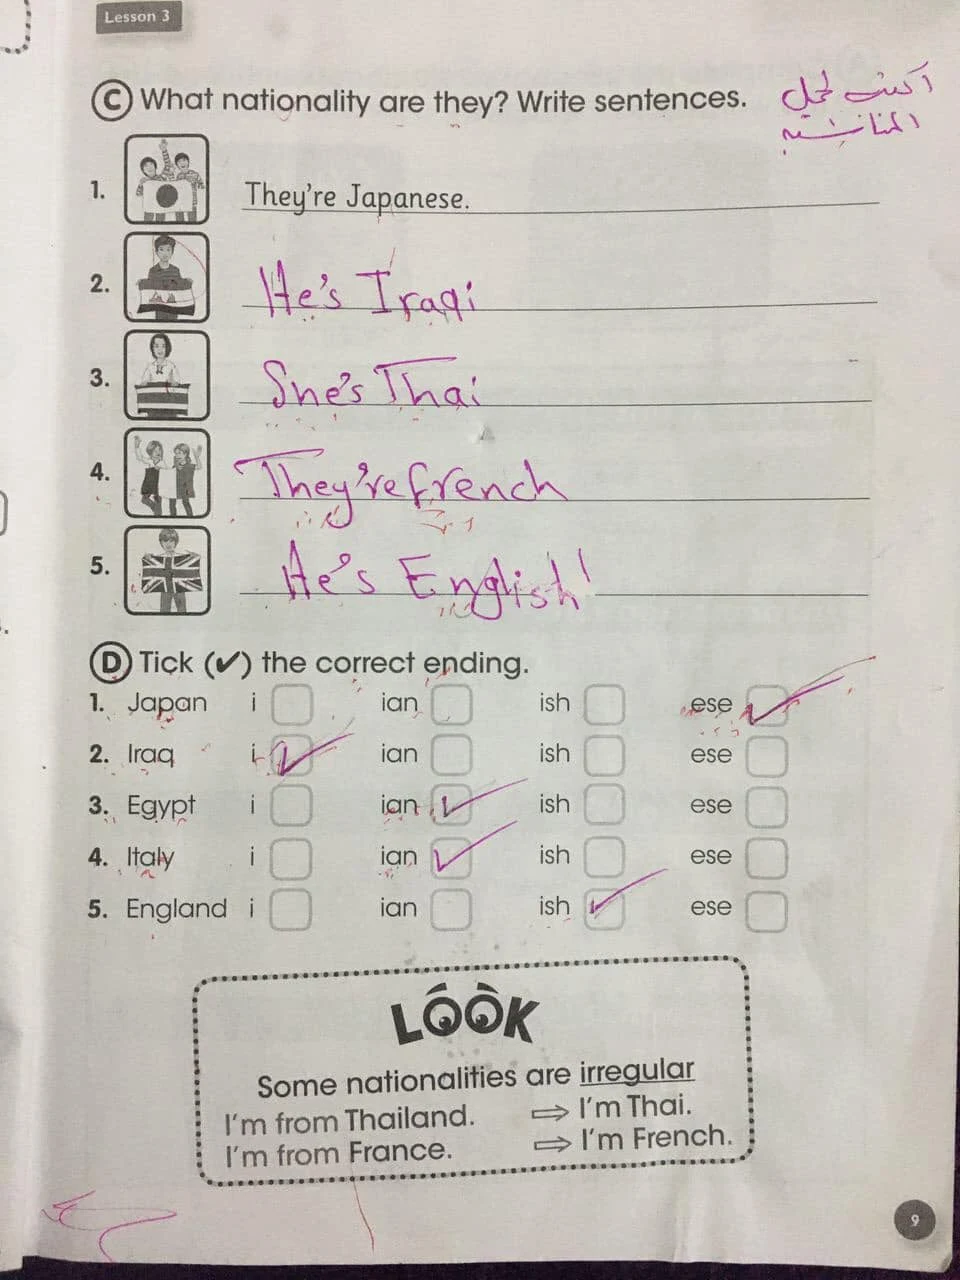 Lesson 3
C What nationality are they? Write sentences.
أكتب الجمل
المناسبه
1. They're Japanese.
2. He's Iraqi
3. She's Thai
4. They're french
5. He's English!
D Tick (✔) the correct ending.
1. Japan i ian ish ese ✓
2. Iraq i ✓ ian ish ese
3. Egypt i ian ✓ ish ese
4. Italy i ian ✓ ish ese
5. England i ian ish ✓ ese
LOOK
Some nationalities are irregular
I'm from Thailand. ⇨ I'm Thai.
I'm from France. ⇨ I'm French.
9